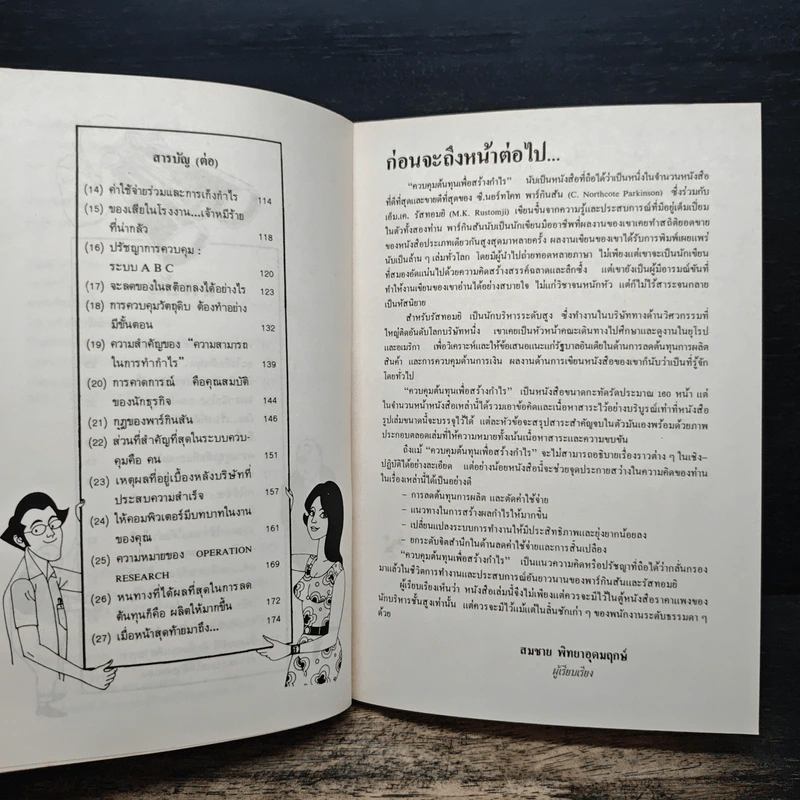 สารบัญ (ต่อ)
(14) ค่าใช้จ่ายร่วมและการเก็งกำไร 114
(15) ของเสียในโรงงาน...เจ้าหมีร้าย
ที่น่ากลัว 118
(16) ปรัชญาการควบคุม :
ระบบ A B C 120
(17) จะลดของในสต๊อกลงได้อย่างไร 123
(18) การควบคุมวัตถุดิบ ต้องทำอย่าง
มีขั้นตอน 132
(19) ความสำคัญของ "ความสามารถ
ในการทำกำไร" 139
(20) การคาดการณ์ คือคุณสมบัติ
ของนักธุรกิจ 144
(21) กฎของพาร์กินสัน 146
(22) ส่วนที่สำคัญที่สุดในระบบควบ-
คุมคือ คน 151
(23) เหตุผลที่อยู่เบื้องหลังบริษัทที่
ประสบความสำเร็จ 157
(24) ให้คอมพิวเตอร์มีบทบาทในงาน
ของคุณ 161
(25) ความหมายของ OPERATION
RESEARCH 169
(26) หนทางที่ได้ผลที่สุดในการลด
ต้นทุนก็คือ ผลิตให้มากขึ้น 172
(27) เมื่อหน้าสุดท้ายมาถึง... 174
ก่อนจะถึงหน้าต่อไป...
"ควบคุมต้นทุนเพื่อสร้างกำไร" นับเป็นหนังสือที่ถือได้ว่าเป็นหนึ่งในจำนวนหนังสือ
ที่ดีที่สุดและขายดีที่สุดของ ซี.นอร์ทโคท พาร์กินสัน (C. Northcote Parkinson) ซึ่งร่วมกับ
เอ็ม.เค. รัสทอมยิ (M.K. Rustomji) เขียนขึ้นจากความรู้และประสบการณ์ที่มีอยู่เต็มเปี่ยม
ในตัวทั้งสองท่าน พาร์กินสันนับเป็นนักเขียนมืออาชีพที่ผลงานของเขาเคยทำสถิติยอดขาย
ของหนังสือประเภทเดียวกันสูงสุดมาหลายครั้ง ผลงานเขียนของเขาได้รับการพิมพ์เผยแพร่
นับเป็นล้าน ๆ เล่มทั่วโลก โดยมีผู้นำไปถ่ายทอดหลายภาษา ไม่เพียงแต่เขาจะเป็นนักเขียน
ที่สมองอัดแน่นไปด้วยความคิดสร้างสรรค์ฉลาดและลึกซึ้ง แต่เขายังเป็นผู้มีอารมณ์ขันที่
ทำให้งานเขียนของเขาอ่านได้อย่างสบายใจ ไม่แก่วิชาจนหนักหัว แต่ก็ไม่ไร้สาระจนกลาย
เป็นหัสนิยาย
สำหรับรัสทอมยิ เป็นนักบริหารระดับสูง ซึ่งทำงานในบริษัททางด้านวิศวกรรมที่
ใหญ่ติดอันดับโลกบริษัทหนึ่ง เขาเคยเป็นหัวหน้าคณะเดินทางไปศึกษาและดูงานในยุโรป
และอเมริกา เพื่อวิเคราะห์และให้ข้อเสนอแนะแก่รัฐบาลอินเดียในด้านการลดต้นทุนการผลิต
สินค้า และการควบคุมด้านการเงิน ผลงานด้านการเขียนหนังสือของเขาก็นับว่าเป็นที่รู้จัก
โดยทั่วไป
"ควบคุมต้นทุนเพื่อสร้างกำไร" เป็นหนังสือขนาดกะทัดรัดประมาณ 160 หน้า แต่
ในจำนวนหน้าหนังสือเหล่านี้ได้รวมเอาข้อคิดและเนื้อหาสาระไว้อย่างบริบูรณ์เท่าที่หนังสือ
รูปเล่มขนาดนี้จะบรรจุไว้ได้ แต่ละหัวข้อจะสรุปสาระสำคัญจบในตัวมันเองพร้อมด้วยภาพ
ประกอบตลอดเล่มที่ให้ความหมายทั้งเน้นเนื้อหาสาระและความขบขัน
ถึงแม้ "ควบคุมต้นทุนเพื่อสร้างกำไร" จะไม่สามารถอธิบายเรื่องราวต่าง ๆ ในเชิง-
ปฏิบัติได้อย่างละเอียด แต่อย่างน้อยหนังสือนี้จะช่วยจุดประกายสว่างในความคิดของท่าน
ในเรื่องเหล่านี้ได้เป็นอย่างดี
– การลดต้นทุนการผลิต และตัดค่าใช้จ่าย
– แนวทางในการสร้างผลกำไรให้มากขึ้น
– เปลี่ยนแปลงระบบการทำงานให้มีประสิทธิภาพและยุ่งยากน้อยลง
– ยกระดับจิตสำนึกในด้านลดค่าใช้จ่ายและการสิ้นเปลือง
"ควบคุมต้นทุนเพื่อสร้างกำไร" เป็นแนวความคิดหรือปรัชญาที่ถือได้ว่ากลั่นกรอง
มาแล้วในชีวิตการทำงานและประสบการณ์อันยาวนานของพาร์กินสันและรัสทอมยิ
ผู้เรียบเรียงเห็นว่า หนังสือเล่มนี้จึงไม่เพียงแต่ควรจะมีไว้ในตู้หนังสือราคาแพงของ
นักบริหารชั้นสูงเท่านั้น แต่ควรจะมีไว้แม้แต่ในลิ้นชักเก่า ๆ ของพนักงานระดับธรรมดา ๆ
ด้วย
สมชาย พิทยาอุดมฤกษ์
ผู้เรียบเรียง